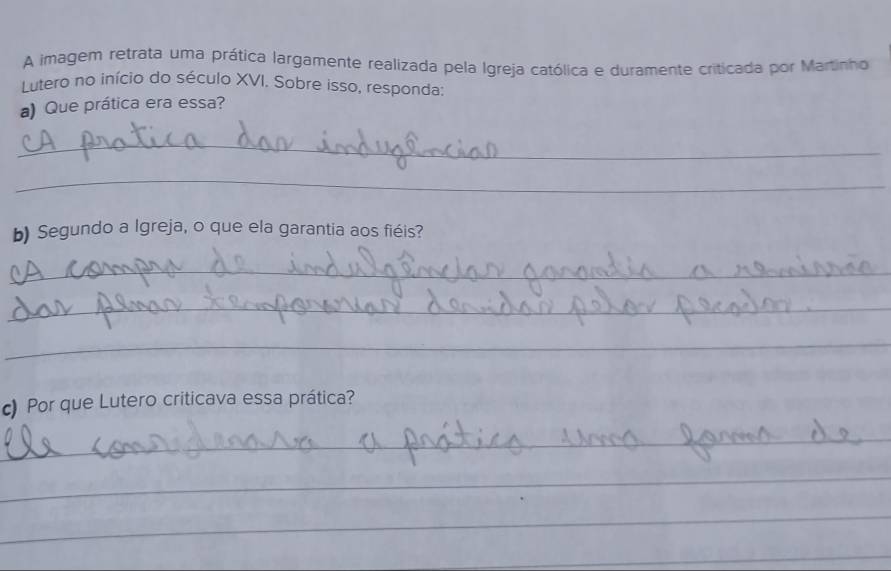 A imagem retrata uma prática largamente realizada pela Igreja católica e duramente criticada por Martinho
Lutero no início do século XVI. Sobre isso, responda:
a) Que prática era essa?
A pratica das indugências
b) Segundo a Igreja, o que ela garantia aos fiéis?
A compra de indulgências garantia a remissão
das penas temporarias devidas pelos pecados.
c) Por que Lutero criticava essa prática?
Ele considerava a prática uma forma de